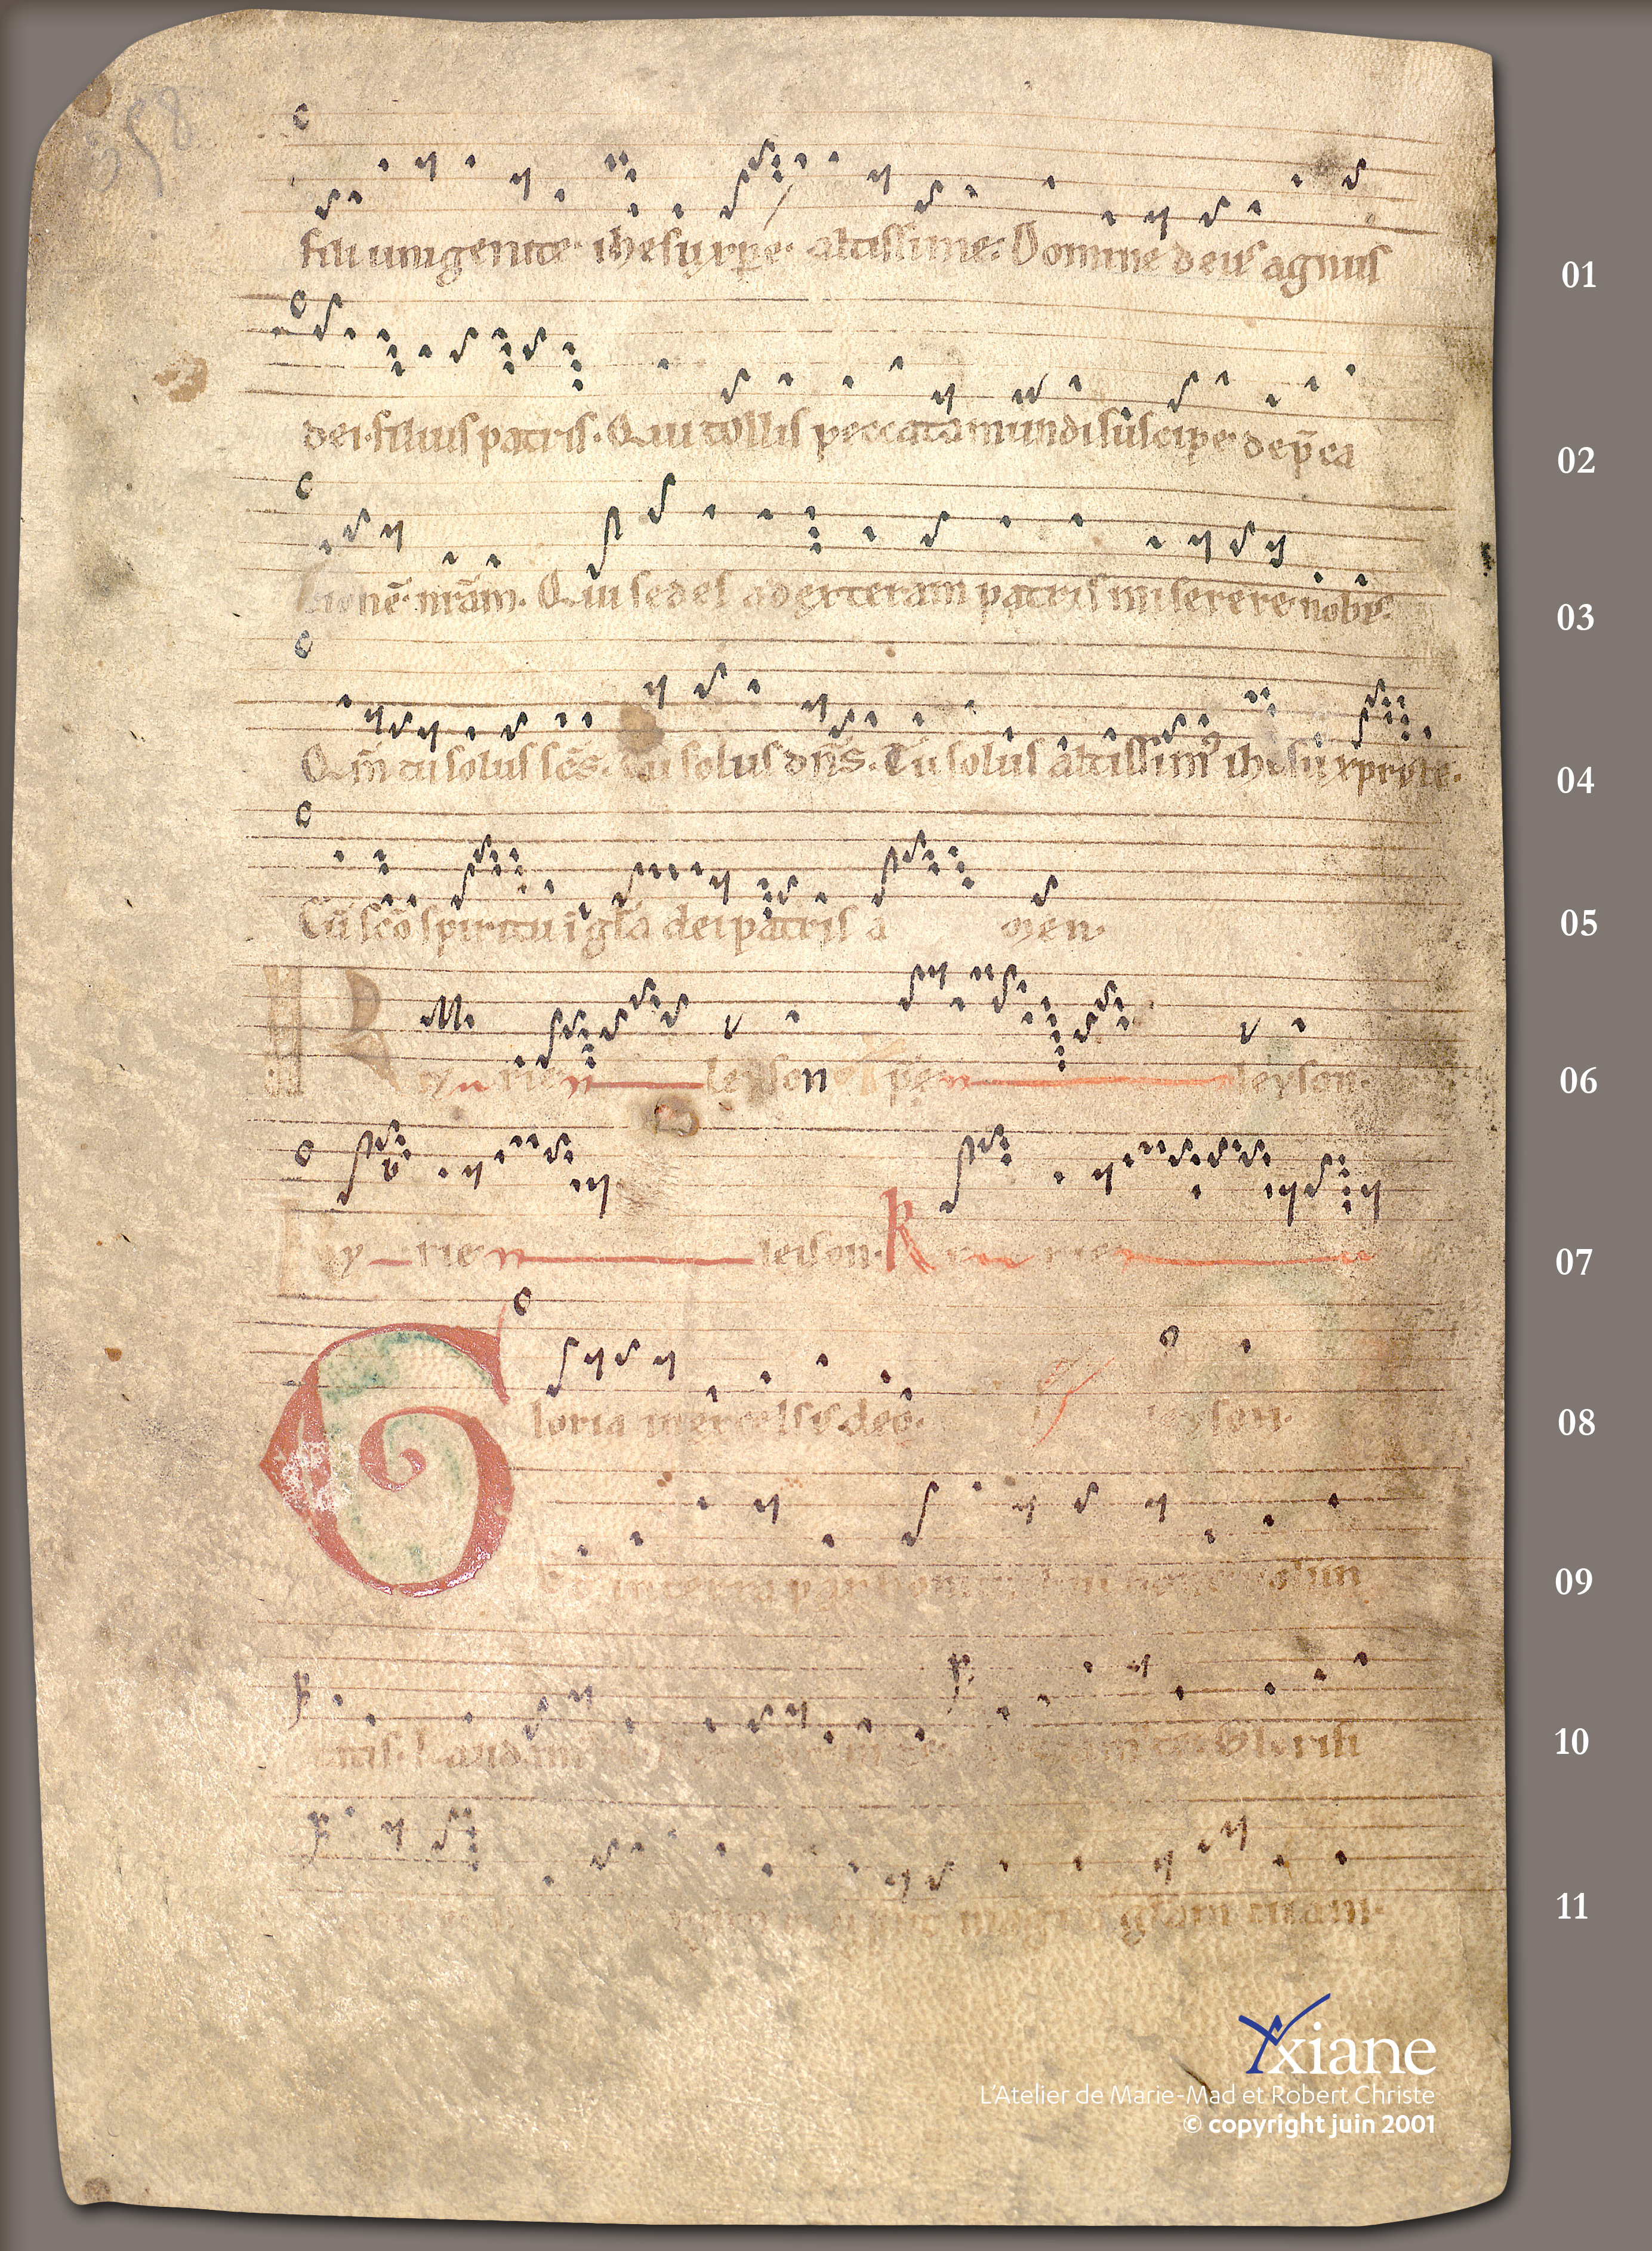 358
fili unigenite· ihesu xp̄e· altissime· Domine deus agnus 01
dei·filius patris· Qui tollis peccata mundi suscipe dep̄ca 02
tionē· nr̄am· Qui sedes ad exteram patris miserere nobis· 03
Qm̄ tu solus sc̄s· tu solus dn̄s· Tu solus altissimꝰ ihesu xpriste· 04
Cū sc̄o spiritu ī gl̄a dei patris a men· 05
K y rie n leyson xp̄e n leyson· 06
K y rie n leison· K rie n 07
Gloria in excelsis deo· leyson· 08
Et in terra pax hom volun 09
tatis· Laudam Glorifi 10
magnā gl̄am tuam· 11
Yxiane
L'Atelier de Marie-Mad et Robert Christe
© copyright juin 2001